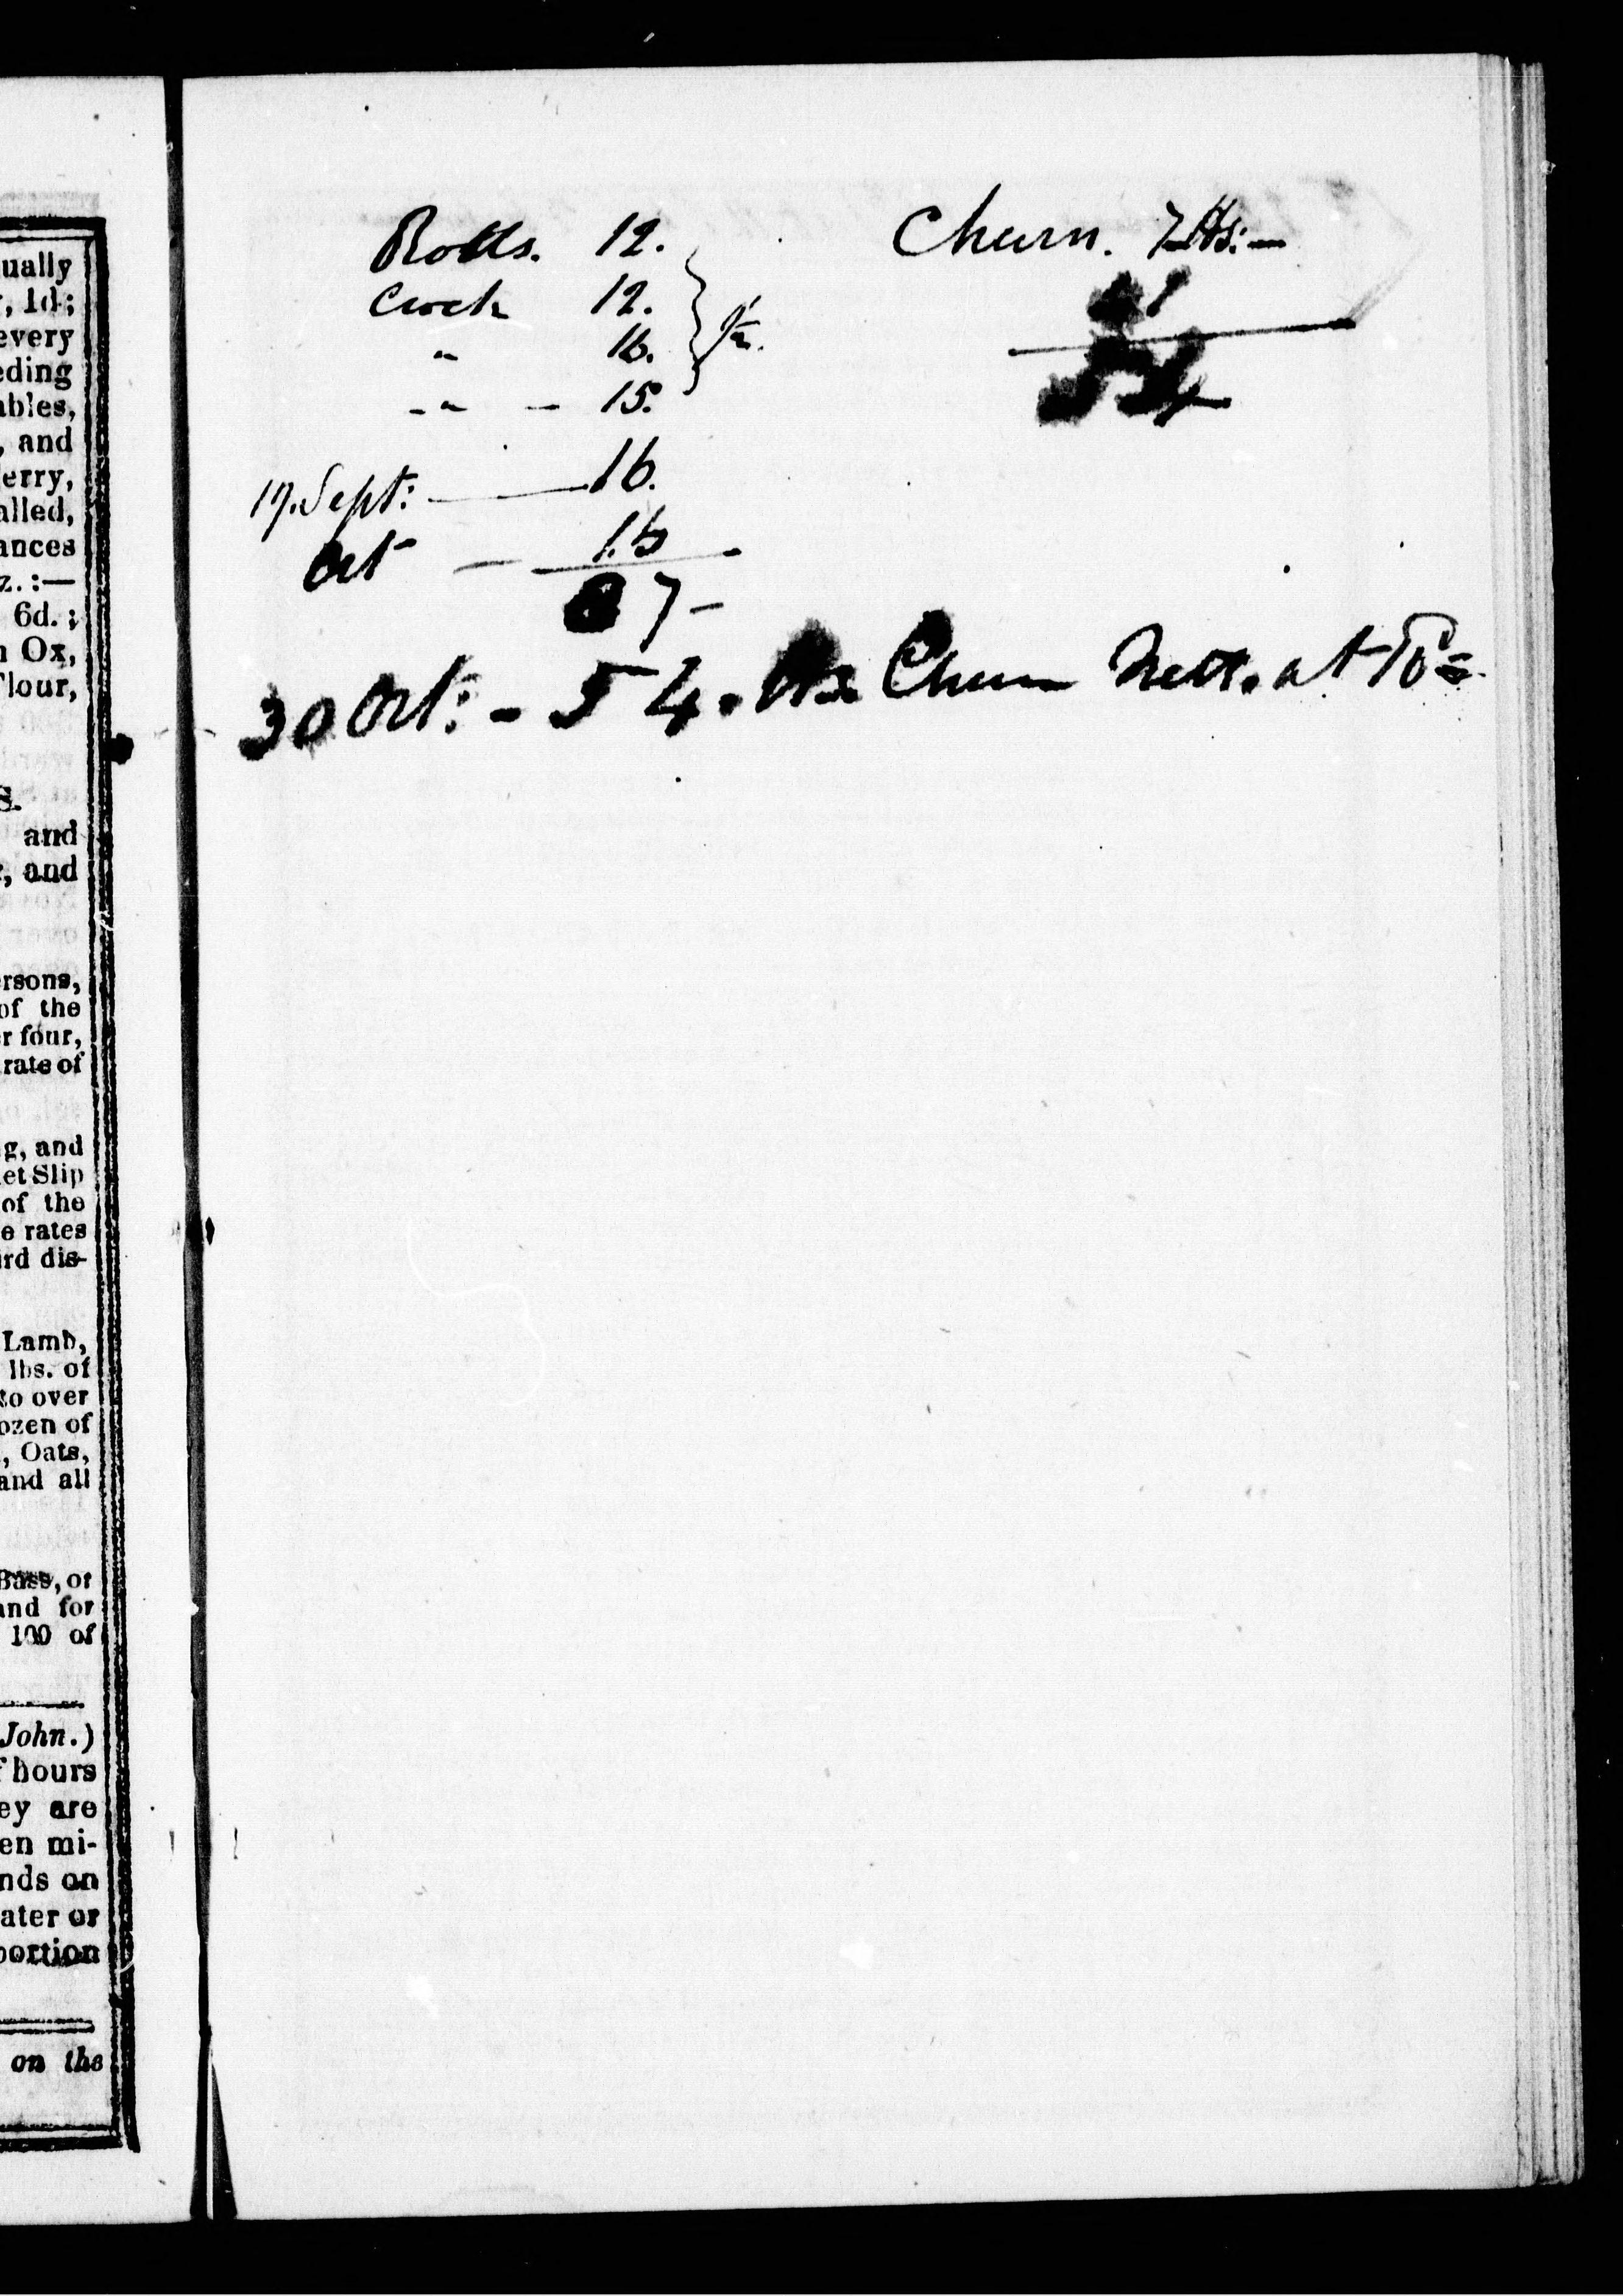 ually
, 1d.;
every
eding
ables,
, and
erry,
alled,
ances
z. :—
6d. ;
Ox,
lour,
S.
and
, and
ersons,
of the
r four,
rate of
g, and
et Slip
of the
e rates
ird dis-
Lamb,
lbs. of
to over
ozen of
, Oats,
and all
Bass, or
and for
100 of
John.)
hours
ey are
en mi-
nds on
ater or
portion
on the
Rolls. 12.
Crock 12.
" 16.
-"- - 15.
17. Sept: — 16.
Oct — 16
87-
Churn. 7 lbs: —
30 Oct: - 54. lbs Churn Nett. at